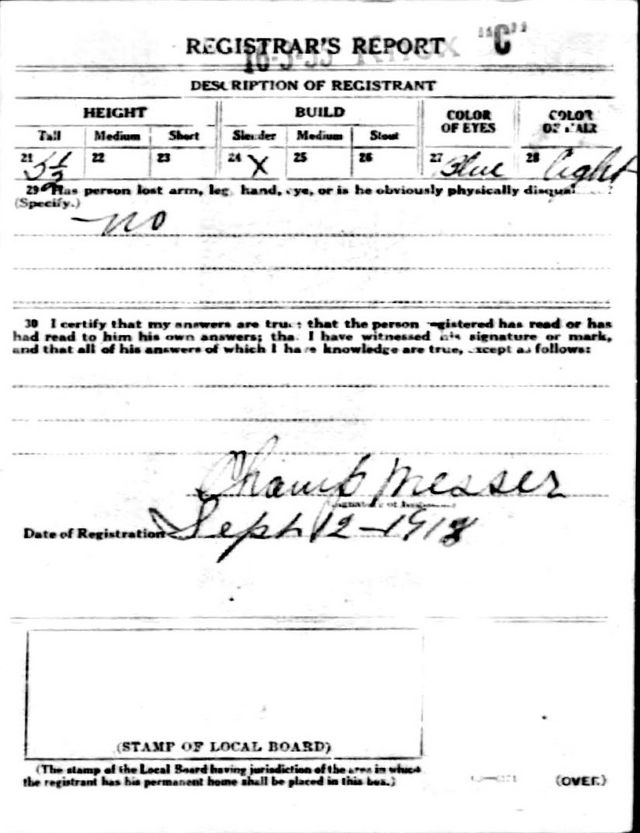 "C"
REGISTRAR'S REPORT
16-3-33 KNOX
DESCRIPTION OF REGISTRANT
HEIGHT BUILD COLOR OF EYES COLOR OF HAIR
Tall Medium Short Slender Medium Stout
21 5 1/2 22 23 24 X 25 26 27 Blue 28 Light
29 Has person lost arm, leg, hand, eye, or is he obviously physically disqual ?
(Specify.)
no
30 I certify that my answers are true; that the person registered has read or has
had read to him his own answers; that I have witnessed his signature or mark,
and that all of his answers of which I have knowledge are true, except as follows:
Champ Messer
Date of Registration Sept 12-1918
(STAMP OF LOCAL BOARD)
(The stamp of the Local Board having jurisdiction of the area in which
the registrant has his permanent home shall be placed in this box.)
(OVER)